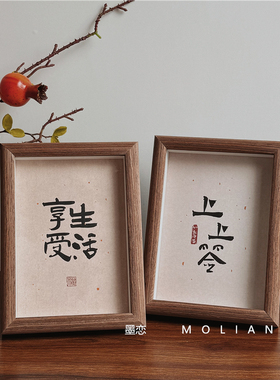 享受
生活
上上签
墨恋 MOLIAN